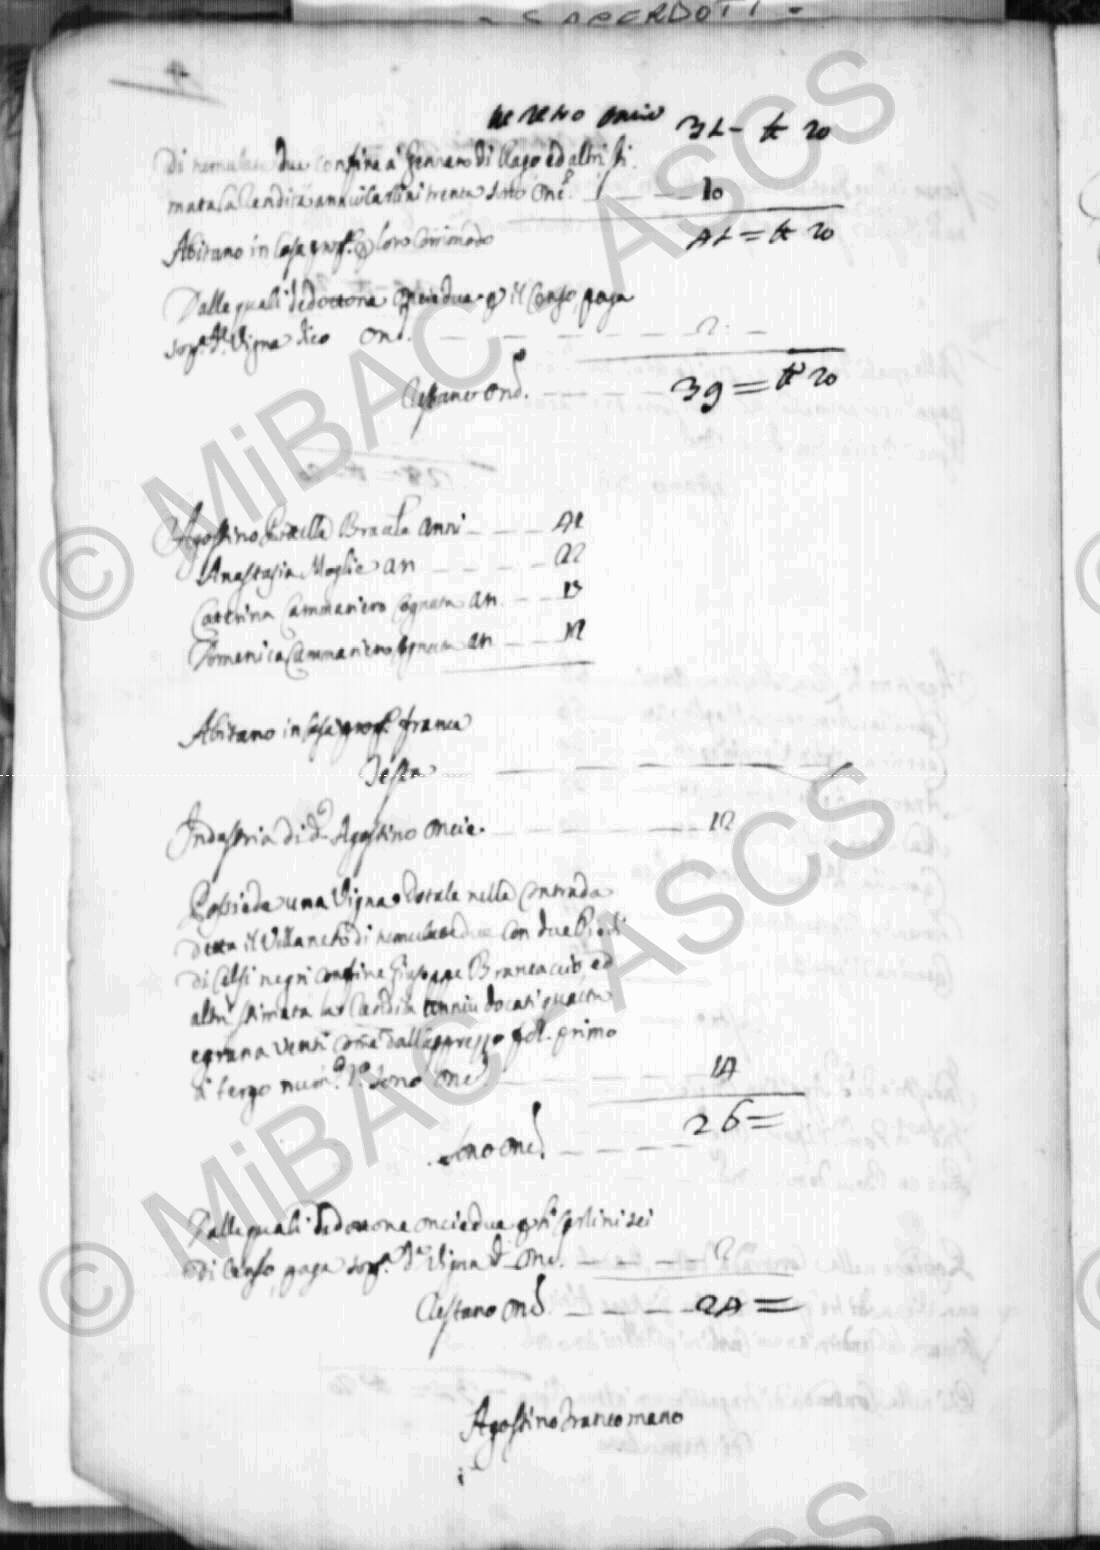 SACERDOTI
A retro oncie 31 = tt 20
Di tumulate due confina a Gennaro di Lago ed altri sti
mata la rendita annui carlini trenta sono onc. 10
Abitano in casa prop. p loro commodo 41 = tt 20
Dalle quali dedottone oncie due p il censo, paga
sop.ª d.ª Vigna dico onc. 2
Restano onc. 39 = tt 20
Agostino Bracc.le anni 41
Anastasia Moglie an 22
Caterina Cammariero Cognata an 13
Domenica Cammariero Cognata an
Abitano in casa prop. franca
Testa
Industria di d.º Agostino oncie 12
Possiede una Vigna dotale nella Contrada
detta il Villaneto di tumulate due con due Piedi
di Celsi negri confina Giuseppe Brancaccio, ed
altri stimata la rendita annui docati quattro
e grana venti come dall'apprezzo fol. primo
a tergo num.º 1.º sono onc. 14
Sono onc. 26 =
Dalle quali dedottone oncie due p li carlini sei
di Censo, paga sop.ª d.ª Vigna d. onc. 2
Restano onc. 24 =
Agostino Francomano
© MiBAC - ASCS
© MiBAC - ASCS